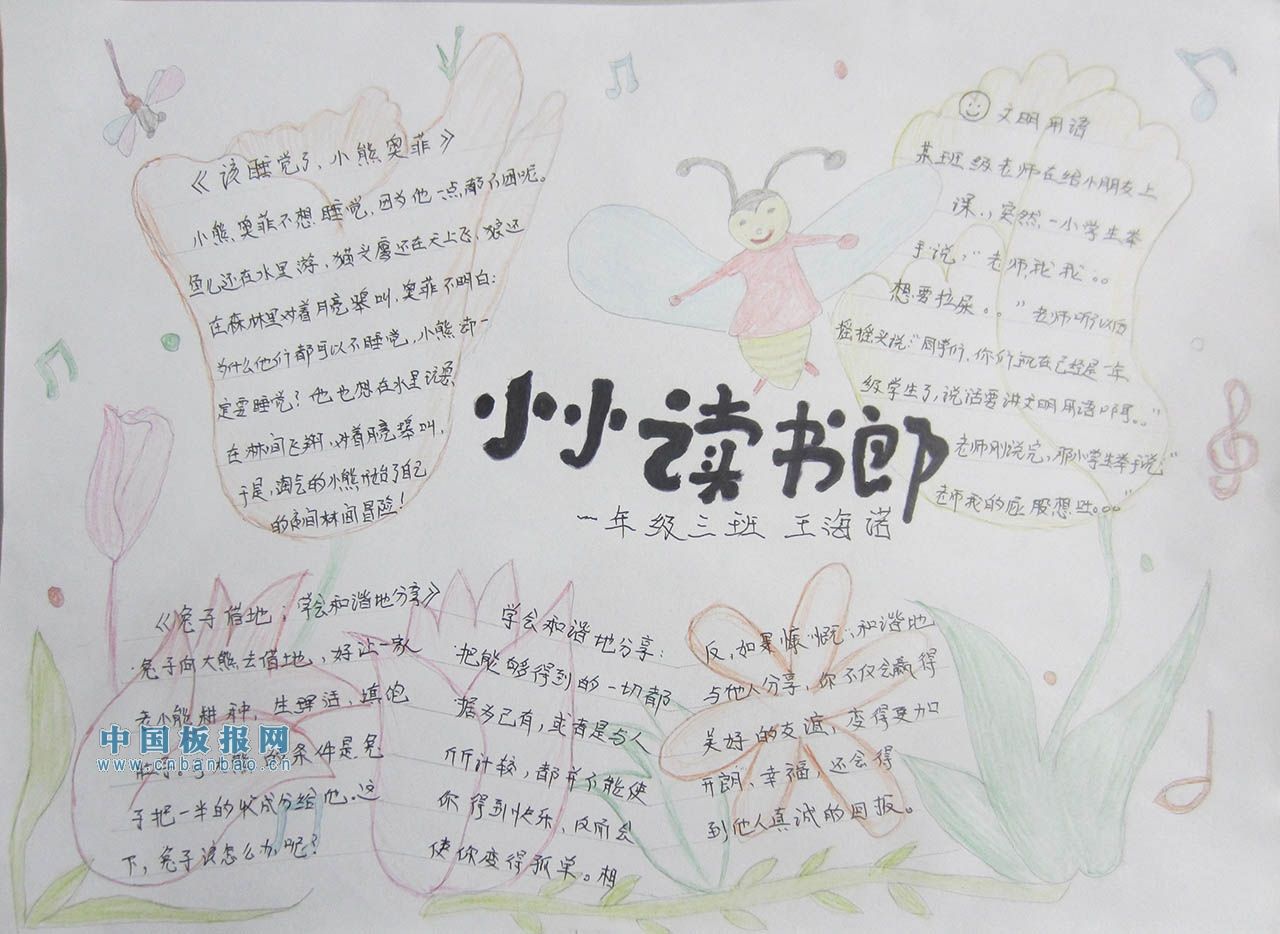 《该睡觉了,小熊奥菲》
小熊奥菲不想睡觉,因为他一点都不困呢。
鱼儿还在水里游,猫头鹰还在天上飞,狼还
在森林里对着月亮嗥叫,奥菲不明白:
为什么他们都可以不睡觉,小熊却一
定要睡觉?他也想在水里玩耍,
在林间飞翔,对着月亮嗥叫,
于是,淘气的小熊开始了自己
的夜间林间冒险!
文明用语
某班级老师在给小朋友上
课.,突然,一小学生举
手说:"老师,我我。。
想要拉屎。。"老师听以后
摇摇头说:"同学们,你们现在已经是一年
级学生了,说话要讲文明用语啊。。"
老师刚说完,那小学生举手说:"
老师我的屁股想吐。。。"
小小读书郎
一年级三班 王海诺
《兔子借地:学会和谐地分享》
兔子向大熊去借地,好让一家
老小能耕种,生活,填饱
条件是兔
子把一半的收成分给他.这
下,兔子该怎么办呢?
学会和谐地分享:
把能够得到的一切都
据为己有,或者是与人
斤斤计较,都并不能使
你得到快乐,反而会
使你变得孤单。相
反,如果慷慨、和谐地
与他人分享,你不仅会赢得
美好的友谊,变得更加
开朗、幸福,还会得
到他人真诚的回报。
中国板报网
www.cnbanbao.cn